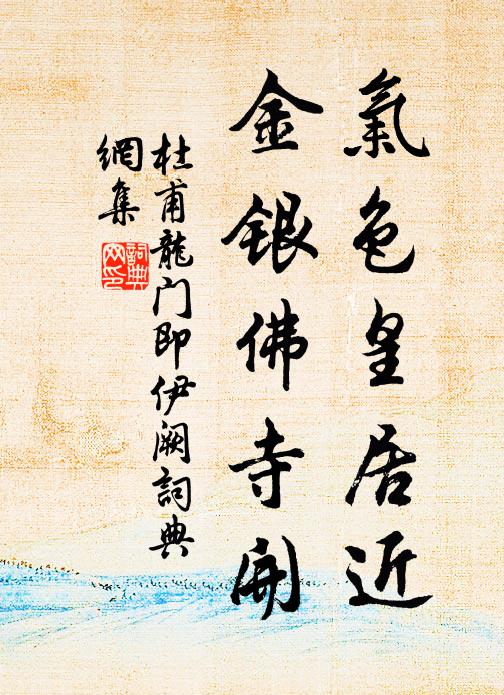 氣色皇居近
金銀佛寺開
杜甫龍门即伊阙詞典
網集
詞典网印